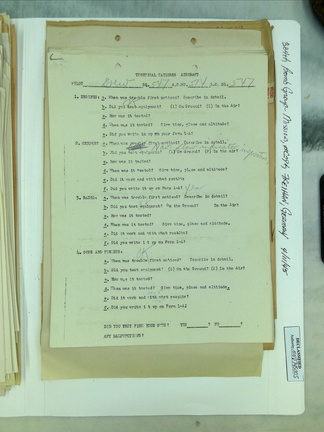 TECHNICAL FAILURES AIRCRAFT
PILOT Drew
547
1. ENGINES: a. When was trouble first noticed? Describe in detail.
b. Did you test equipment? (1) On Ground? (2) In the Air?
c. How was it tested?
d. When was it tested? Give time, place and altitude?
e. Did you write it up on your Form 1-A?
2. OXYGEN: a. When was trouble first noticed? Describe in detail.
b. Did you test equipment? (1) On Ground? (2) In the Air?
c. How was it tested?
d. When was it tested? Give time, place and altitude?
e. Did it work and with what results?
f. Did you write it up on Form 1-A?
3. RADIO: a. When was trouble first noticed? Describe in detail?
b. Did you test equipment? On the Ground? In the Air?
c. How was it tested?
d. When was it tested? Give time, place and altitude?
e. Did it work and with what results?
f. Did you write it up on Form 1-A?
4. GUNS AND TURRETS:
a. When was trouble first noticed? Describe in detail.
b. Did you test equipment? (1) On the Ground? (2) In the Air?
c. How was it tested?
d. When was it tested? Give time, place and altitude.
e. Did it work and with what results?
f. Did you write it up on Form 1-A?
DID YOU TEST FIRE YOUR GUNS? YES ? NO ?
ANY MALFUNCTIONS?
DECLASSIFIED